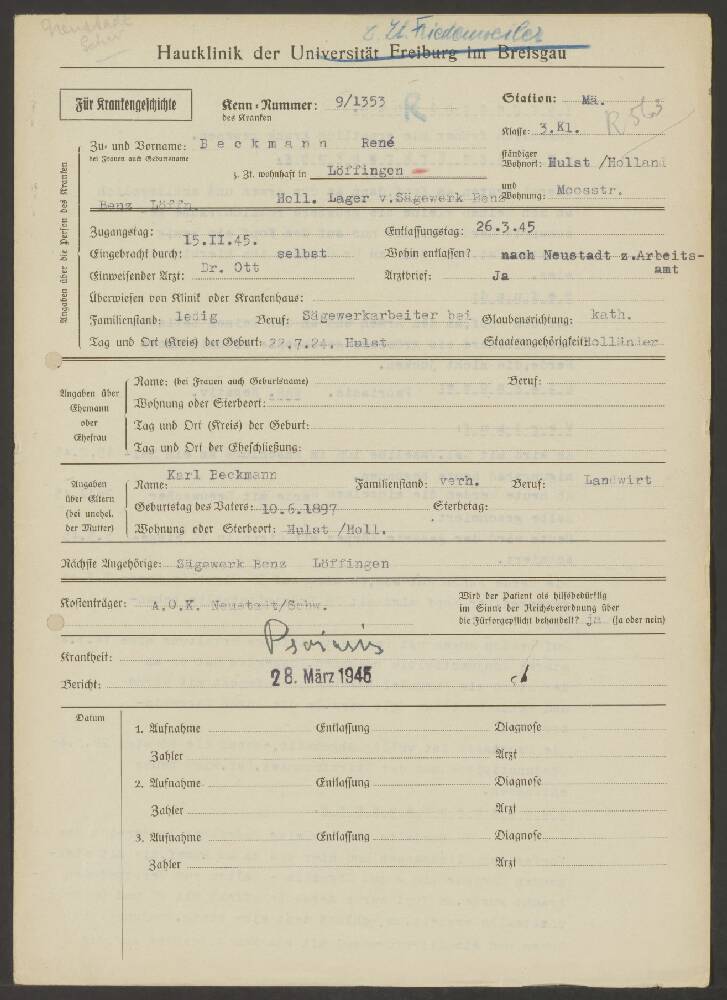 Neustadt
z. Zt. Friedenweiler
Hautklinik der Universität Freiburg im Breisgau
Für Krankengeschichte
Kenn-Nummer: 9/1353 R
des Kranken
Station: Mä.
Klasse: 3.Kl. R 563
Angaben über die Person des Kranken
Zu- und Vorname: Beckmann René
bei Frauen auch Geburtsname
ständiger Wohnort: Hulst /Holland
z. Zt. wohnhaft in Löffingen
und Wohnung: Moosstr.
Benz Löffn. Holl. Lager v.Sägewerk Benz
Zugangstag: 15.II.45. Entlassungstag: 26.3.45
Eingebracht durch: selbst Wohin entlassen? nach Neustadt z.Arbeits-
amt
Einweisender Arzt: Dr. Ott Arztbrief: Ja
Überwiesen von Klinik oder Krankenhaus:
Familienstand: ledig Beruf: Sägewerkarbeiter bei Glaubensrichtung: kath.
Tag und Ort (Kreis) der Geburt: 22.7.24. Hulst Staatsangehörigkeit Holländer
Angaben über Ehemann oder Ehefrau
Name: (bei Frauen auch Geburtsname) Beruf:
Wohnung oder Sterbeort:
Tag und Ort (Kreis) der Geburt:
Tag und Ort der Eheschließung:
Angaben über Eltern (bei unehel. der Mutter)
Name: Karl Beckmann Familienstand: verh. Beruf: Landwirt
Geburtstag des Vaters: 10.6.1897 Sterbetag:
Wohnung oder Sterbeort: Hulst /Holl.
Nächste Angehörige: Sägewerk Benz Löffingen
Kostenträger: A.O.K. Neustadt/Schw.
Wird der Patient als hilfsbedürftig
im Sinne der Reichsverordnung über
die Fürsorgepflicht behandelt? ja (Ja oder nein)
Krankheit: Psoriasis
Bericht: 28. März 1945
Datum
1. Aufnahme Entlassung Diagnose
Zahler Arzt
2. Aufnahme Entlassung Diagnose
Zahler Arzt
3. Aufnahme Entlassung Diagnose
Zahler Arzt